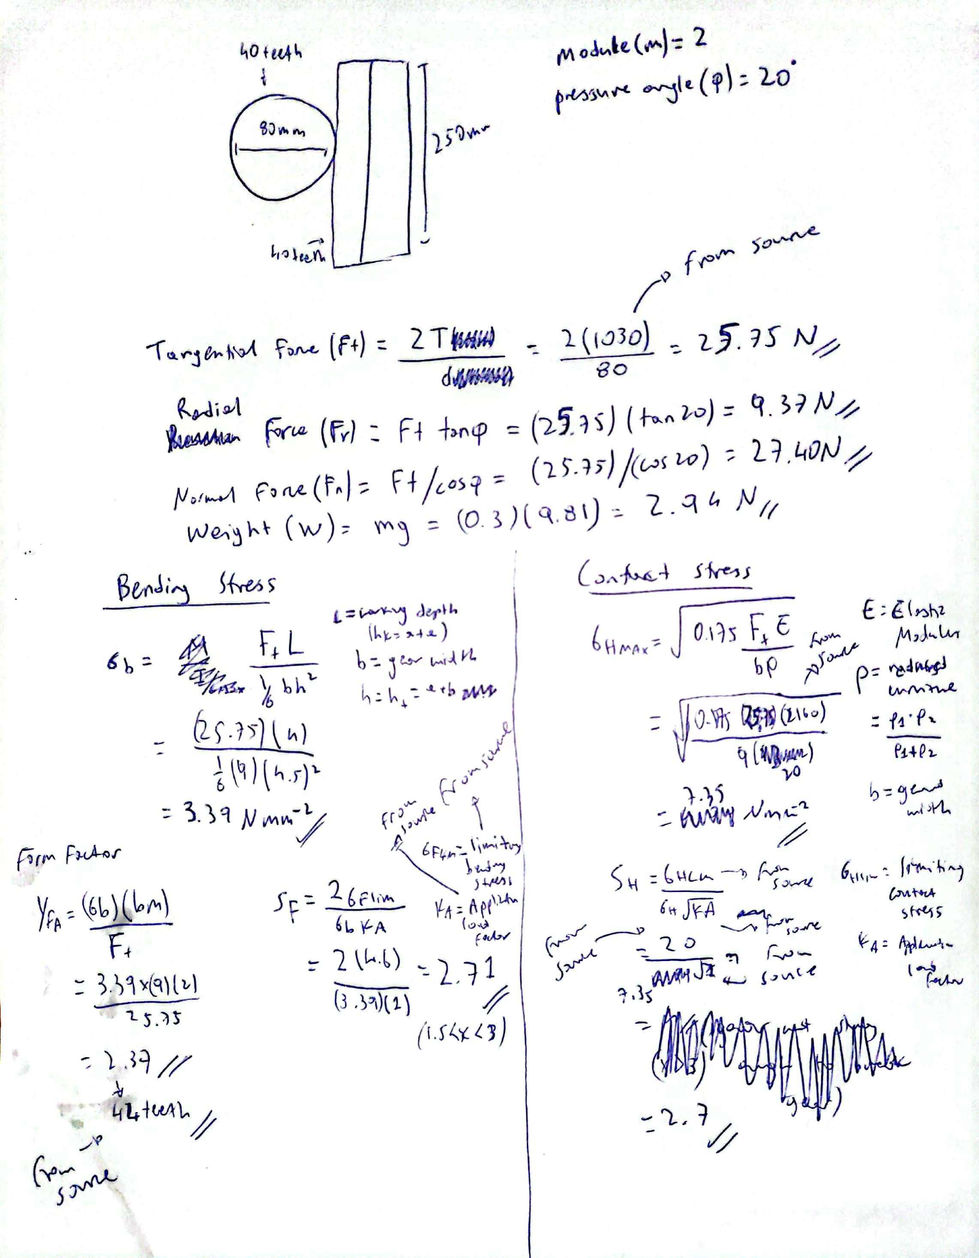 40 teeth
80mm
250mm
40 teeth
Module (m) = 2
pressure angle (φ) = 20°
from source
Tangential Force (Ft) = 2T / d = 2(1030) / 80 = 25.75 N
Radial
Force (Fr) = Ft tanφ = (25.75)(tan20) = 9.37N
Normal Force (Fn) = Ft/cosφ = (25.75)/(cos20) = 27.40N
Weight (W) = mg = (0.3)(9.81) = 2.94 N
Bending Stress
σb = Ft L / 1/6 bh²
L = working depth
b = gear width
= (25.75)(4) / 1/6 (9)(4.5)²
= 3.39 Nmm⁻²
Form Factor
YFA = (σb)(bm) / Ft
= 3.39x(9)(2) / 25.75
= 2.37
42 teeth
from source
SF = 2σFlim / σb KA
= 2(4.6) / (3.39)(1) = 2.71
(1.5<x<3)
from source
from source
σFlim = limiting bending stress
KA = Application load factor
Contact Stress
σHMAX = √ 0.175 Ft E / bρ
from source
E = Elastic Modulus
ρ = reduced
= ρ1·ρ2 / ρ1+ρ2
b = gear width
= √ 0.175 (25.75)(2160) / 9 (20)
= 7.35 Nmm⁻²
SH = σHlim / σH √KA
from source
from source
σHlim = limiting contact stress
KA = Application load factor
from source
= 20 / 7.35
from source
= 2.7